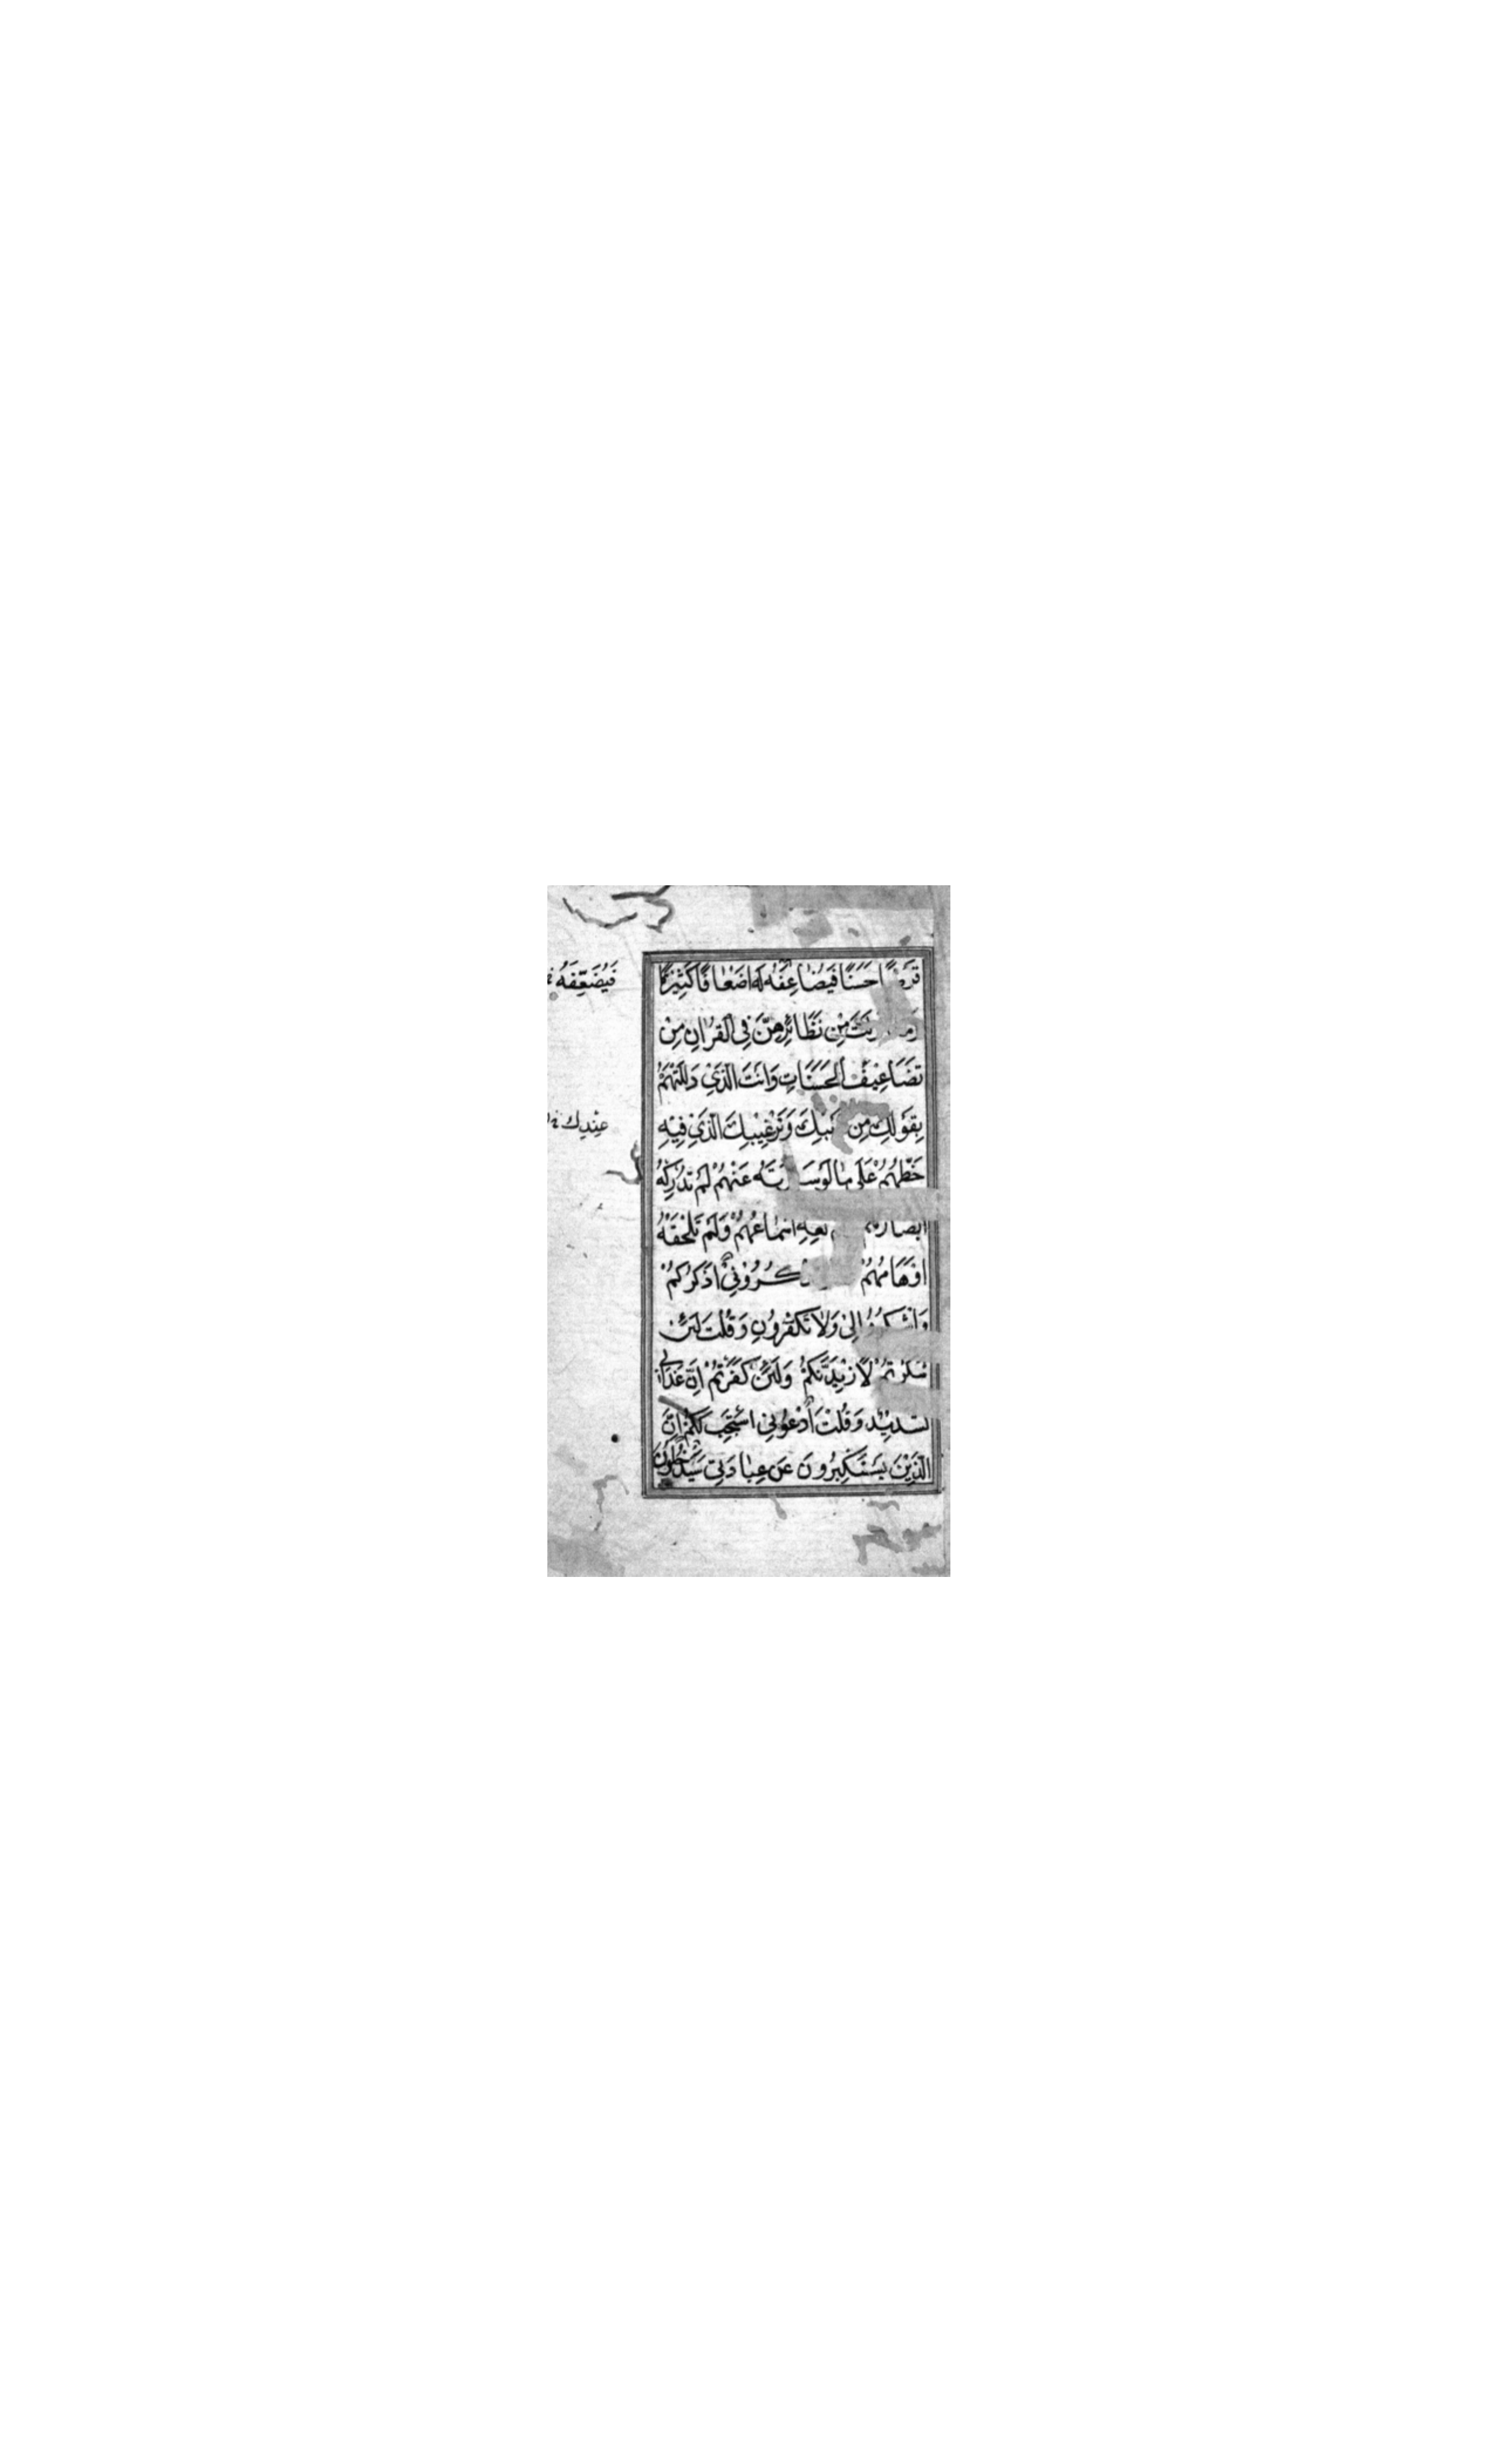 قَرْضًا حَسَنًا فَيُضَاعِفَهُ لَهُ اَضْعَافًا كَثِيْرَةً
مِنْ نَظَائِرِهِنَّ فِي الْقُرْاٰنِ مِنْ
تَضَاعِيْفِ الْحَسَنَاتِ وَاَنْتَ الَّذِيْ دَلَلْتَهُمْ
بِقَوْلِكَ مِنْ وَتَرْغِيْبِكَ الَّذِيْ فِيْهِ
حَظُّهُمْ عَلٰى مَا لَوْ عَنْهُمْ لَمْ تُدْرِكْهُ
اَبْصَارُهُمْ اَسْمَاعُهُمْ وَلَمْ تَلْحَقْهُ
اَوْهَامُهُمْ اَذْكُرْكُمْ
وَاشْكُرُوْا لِيْ وَلَا تَكْفُرُوْنِ وَقُلْتَ لَئِنْ
شَكَرْتُمْ لَاَزِيْدَنَّكُمْ وَلَئِنْ كَفَرْتُمْ اِنَّ عَذَابِيْ
لَشَدِيْدٌ وَقُلْتَ اُدْعُوْنِيْ اَسْتَجِبْ لَكُمْ اِنَّ
الَّذِيْنَ يَسْتَكْبِرُوْنَ عَنْ عِبَادَتِيْ سَيَدْخُلُوْنَ
فَيُضَعِّفَهُ
عِنْدِكَ